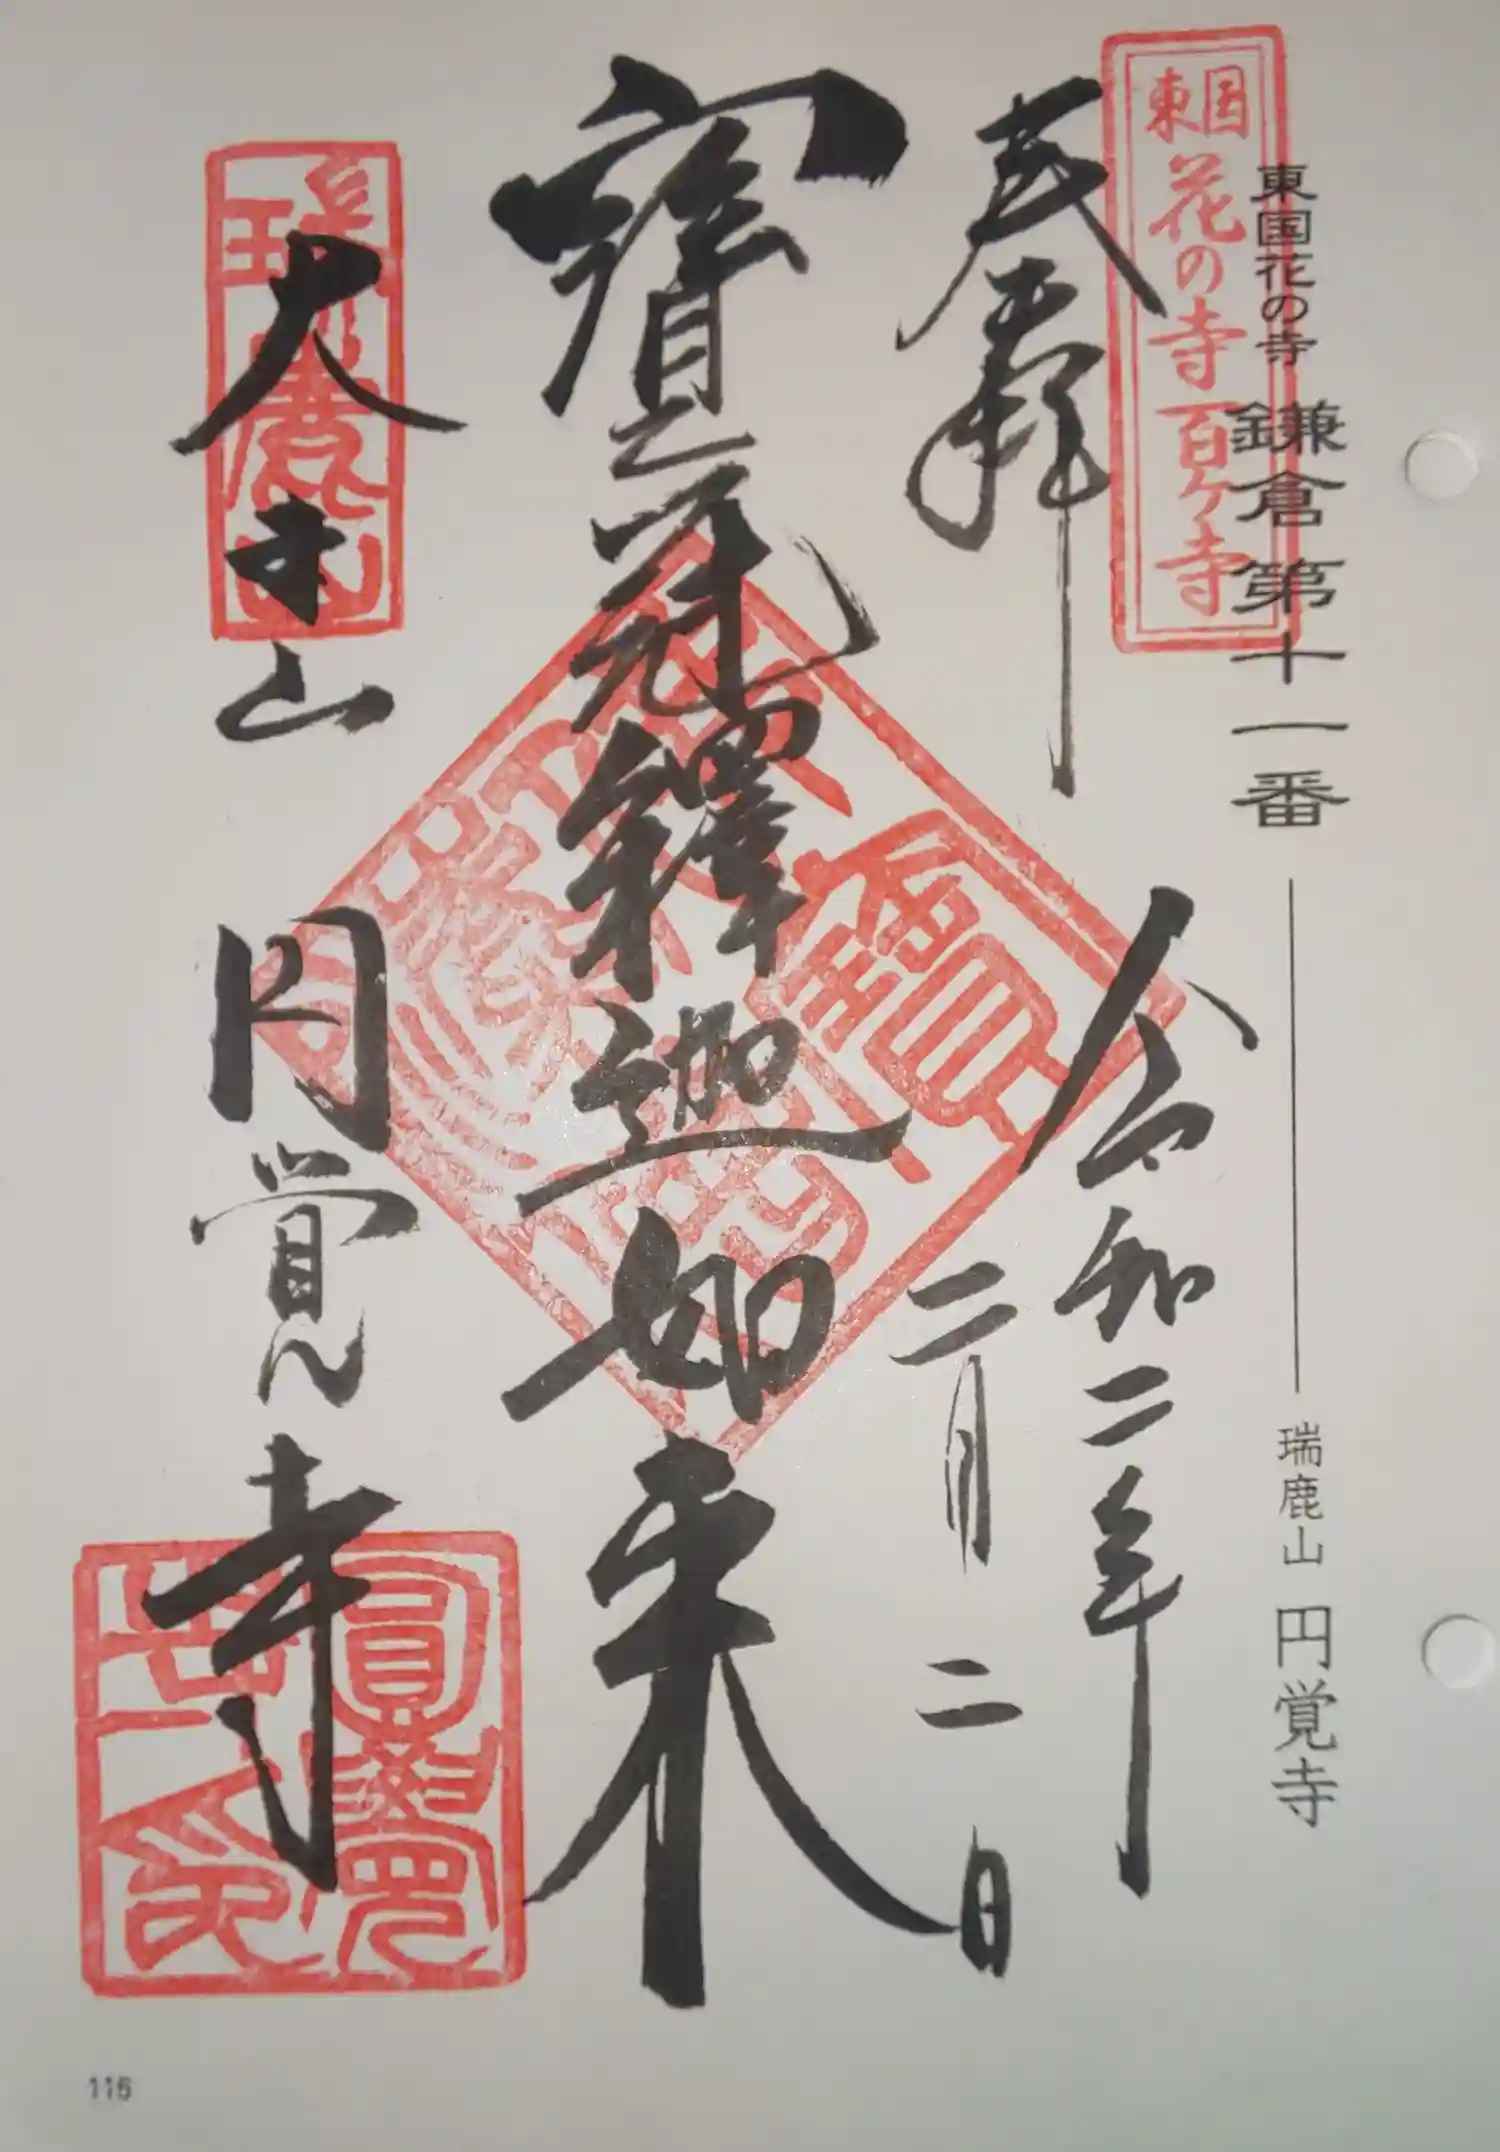 東国花の寺 鎌倉第十一番 瑞鹿山 円覚寺
東国花の寺百ケ寺
奉拝
令和二年
二月二日
寶冠釋迦如来
大本山 円覚寺
瑞鹿山
116